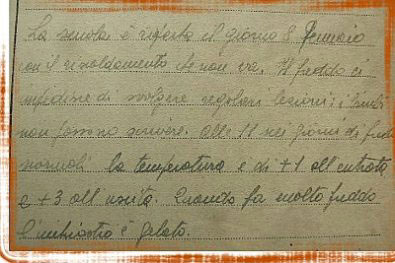 La scuola è riaperta il giorno 8 Gennaio
con il riscaldamento che non va. Il freddo ci
impedisce di svolgere regolari lezioni: i bimbi
non possono scrivere. Alle 11 nei giorni di freddo
normali la temperatura e di +1 all'entrata
e +3 all'uscita. Quando fa molto freddo
l'inchiostro è gelato.